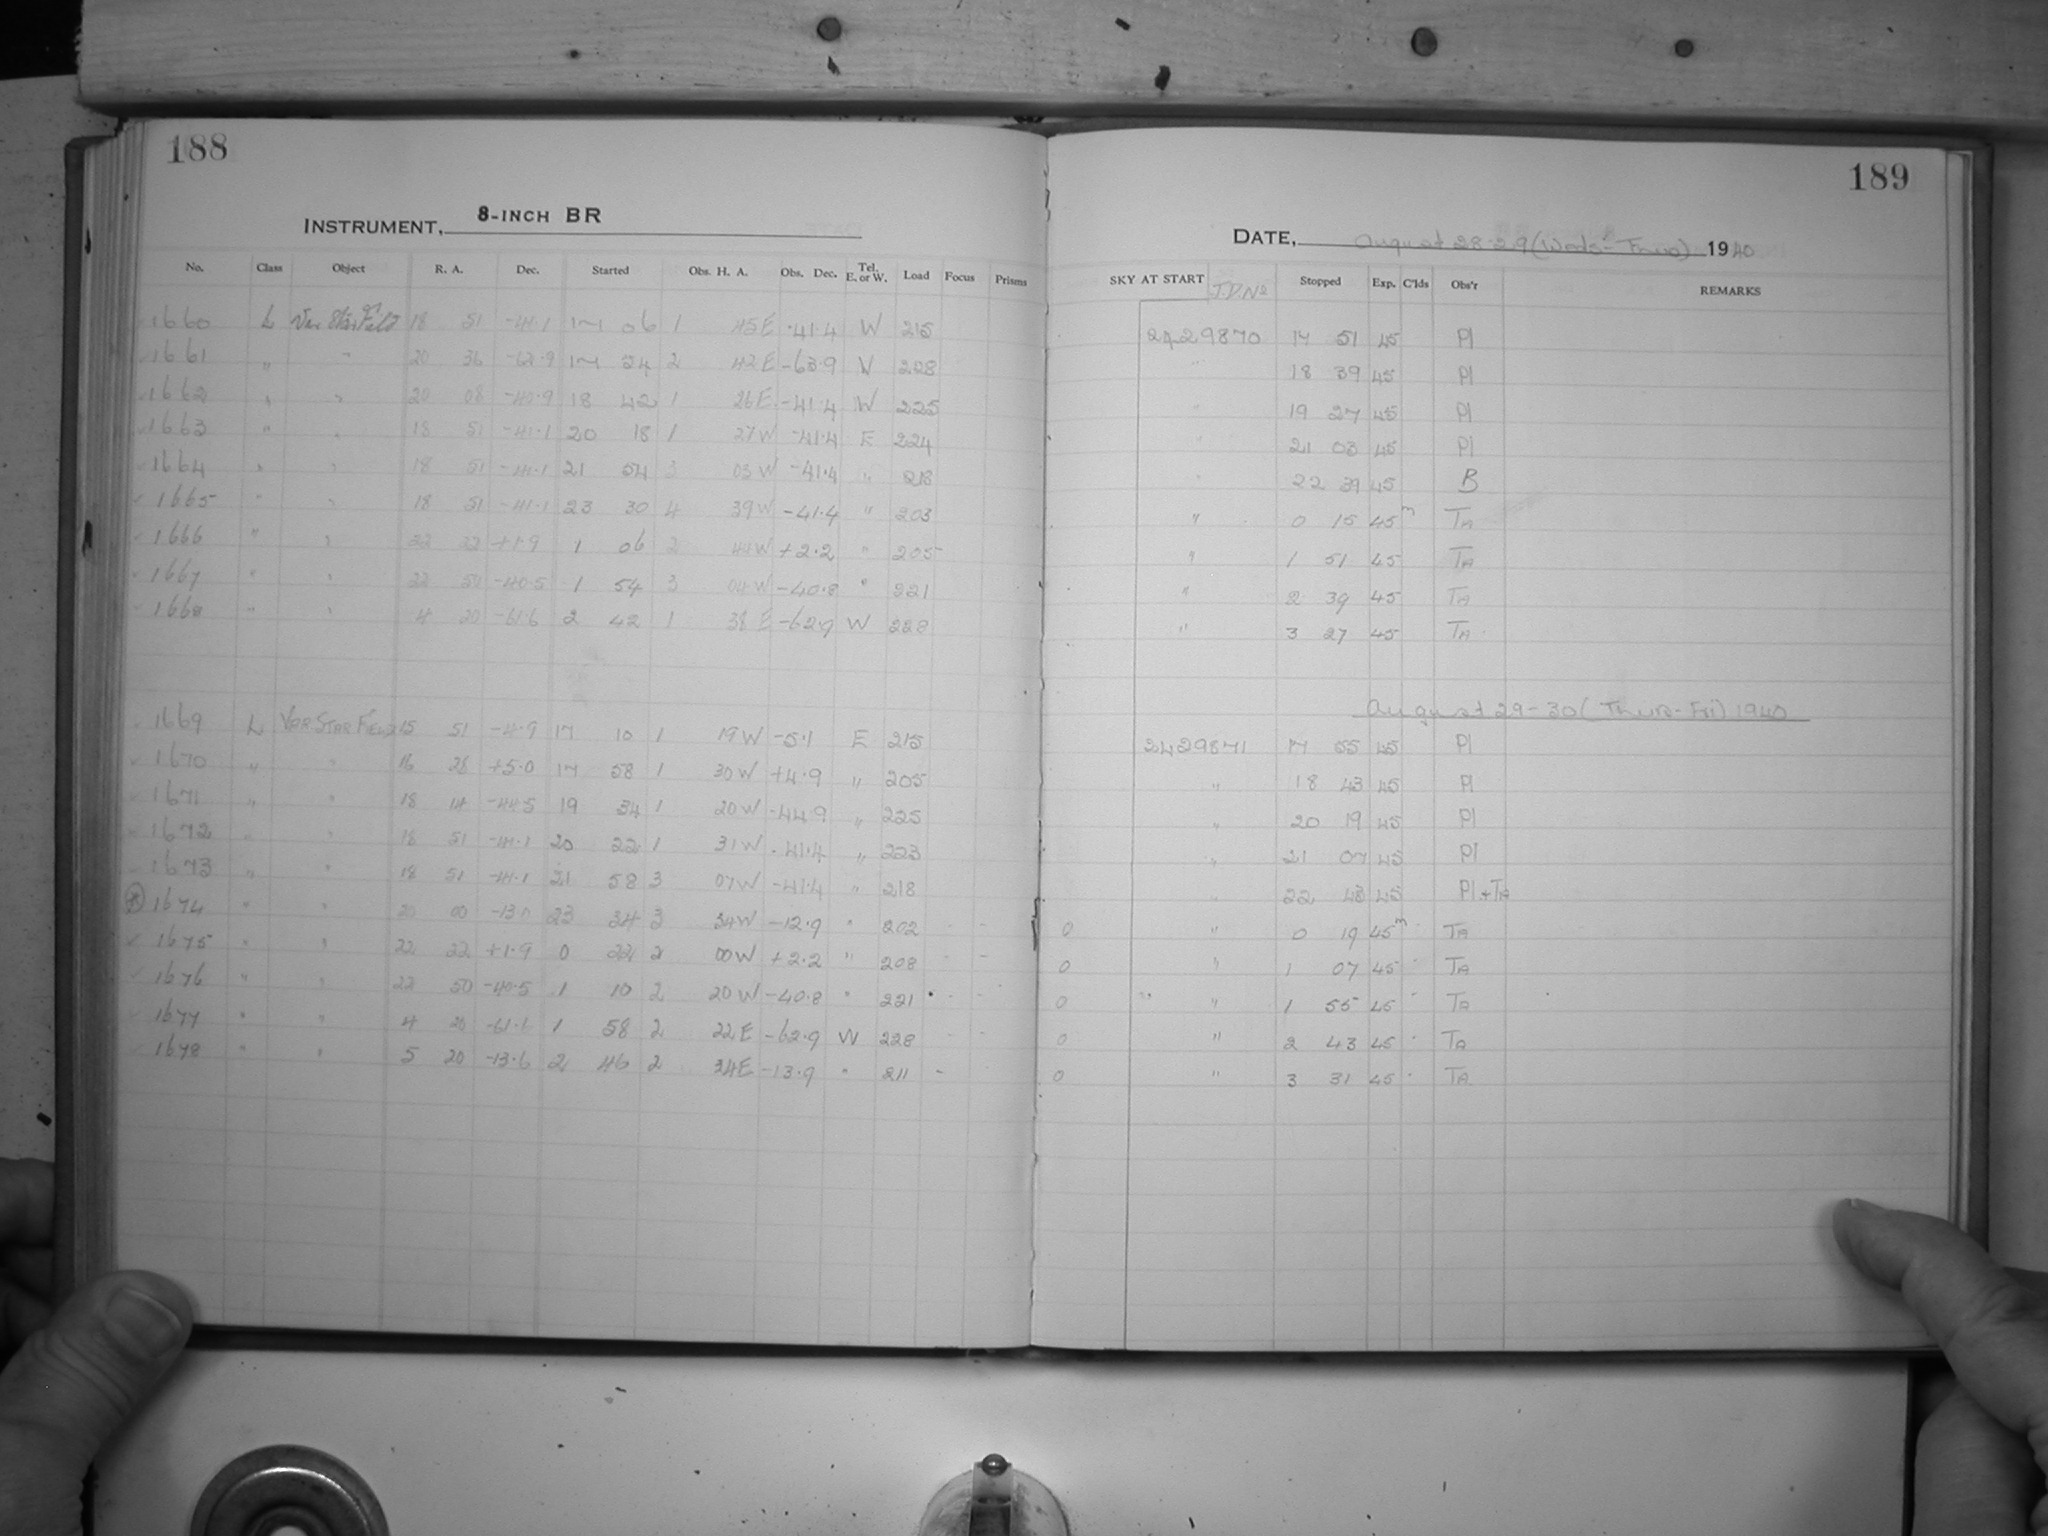 188
INSTRUMENT, 8-INCH BR
No. Class Object R. A. Dec. Started Obs. H. A. Obs. Dec. Tel. E. or W. Load Focus Prisms
1660 L Var Star Field 18 51 -41.1 17 06 1 45 E -41.4 W 215
1661 " " 20 36 17 54 2 42 E -63.9 W 228
1662 " " 20 08 -40.9 18 42 1 26 E -41.4 W 225
1663 " " 18 51 -41.1 20 18 1 27 W -41.4 E 224
1664 " " 18 51 -41.1 21 54 3 03 W -41.4 " 218
1665 " " 18 51 -41.1 23 30 4 39 W -41.4 " 203
1666 " " 22 22 +1.9 1 06 2 44 W +2.2 " 205
1667 " " 22 50 -40.5 1 54 3 04 W -40.8 " 221
1668 " " 4 20 -61.6 2 42 1 38 E -62.9 W 228
1669 L VAR STAR FIELD 15 51 -4.9 17 10 1 19 W -5.1 E 215
1670 " " 16 28 +5.0 17 58 1 30 W +4.9 " 205
1671 " " 18 14 -44.5 19 34 1 20 W -44.9 " 225
1672 " " 18 51 -41.1 20 22 1 31 W -41.4 " 223
1673 " " 18 51 -41.1 21 58 3 07 W -41.4 " 218
1674 " " 20 00 -13.0 23 34 3 34 W -12.9 " 202
1675 " " 22 22 +1.9 0 22 2 00 W +2.2 " 208
1676 " " 22 50 -40.5 1 10 2 20 W -40.8 " 221
1677 " " 4 20 -61.6 1 58 2 22 E -62.9 W 228
1678 " " 5 20 -13.6 2 46 2 34 E -13.9 " 211 -
189
DATE, August 28-29 (Weds-Thurs) 1940
SKY AT START J.D. No Stopped Exp. C'lds Obs'r REMARKS
2429870 17 51 45 Pl
" 18 39 45 Pl
" 19 27 45 Pl
" 21 03 45 Pl
" 22 39 45 B
" 0 15 45m TA
" 1 51 45 TA
" 2 39 45 TA
" 3 27 45 TA
August 29-30 (Thurs-Fri) 1940
2429871 17 55 45 Pl
" 18 43 45 Pl
" 20 19 45 Pl
" 21 07 45 Pl
" 22 43 45 Pl + TA
0 " 0 19 45m TA
0 " 1 07 45 TA
0 " 1 55 45 TA
0 " 2 43 45 TA
0 " 3 31 45 TA